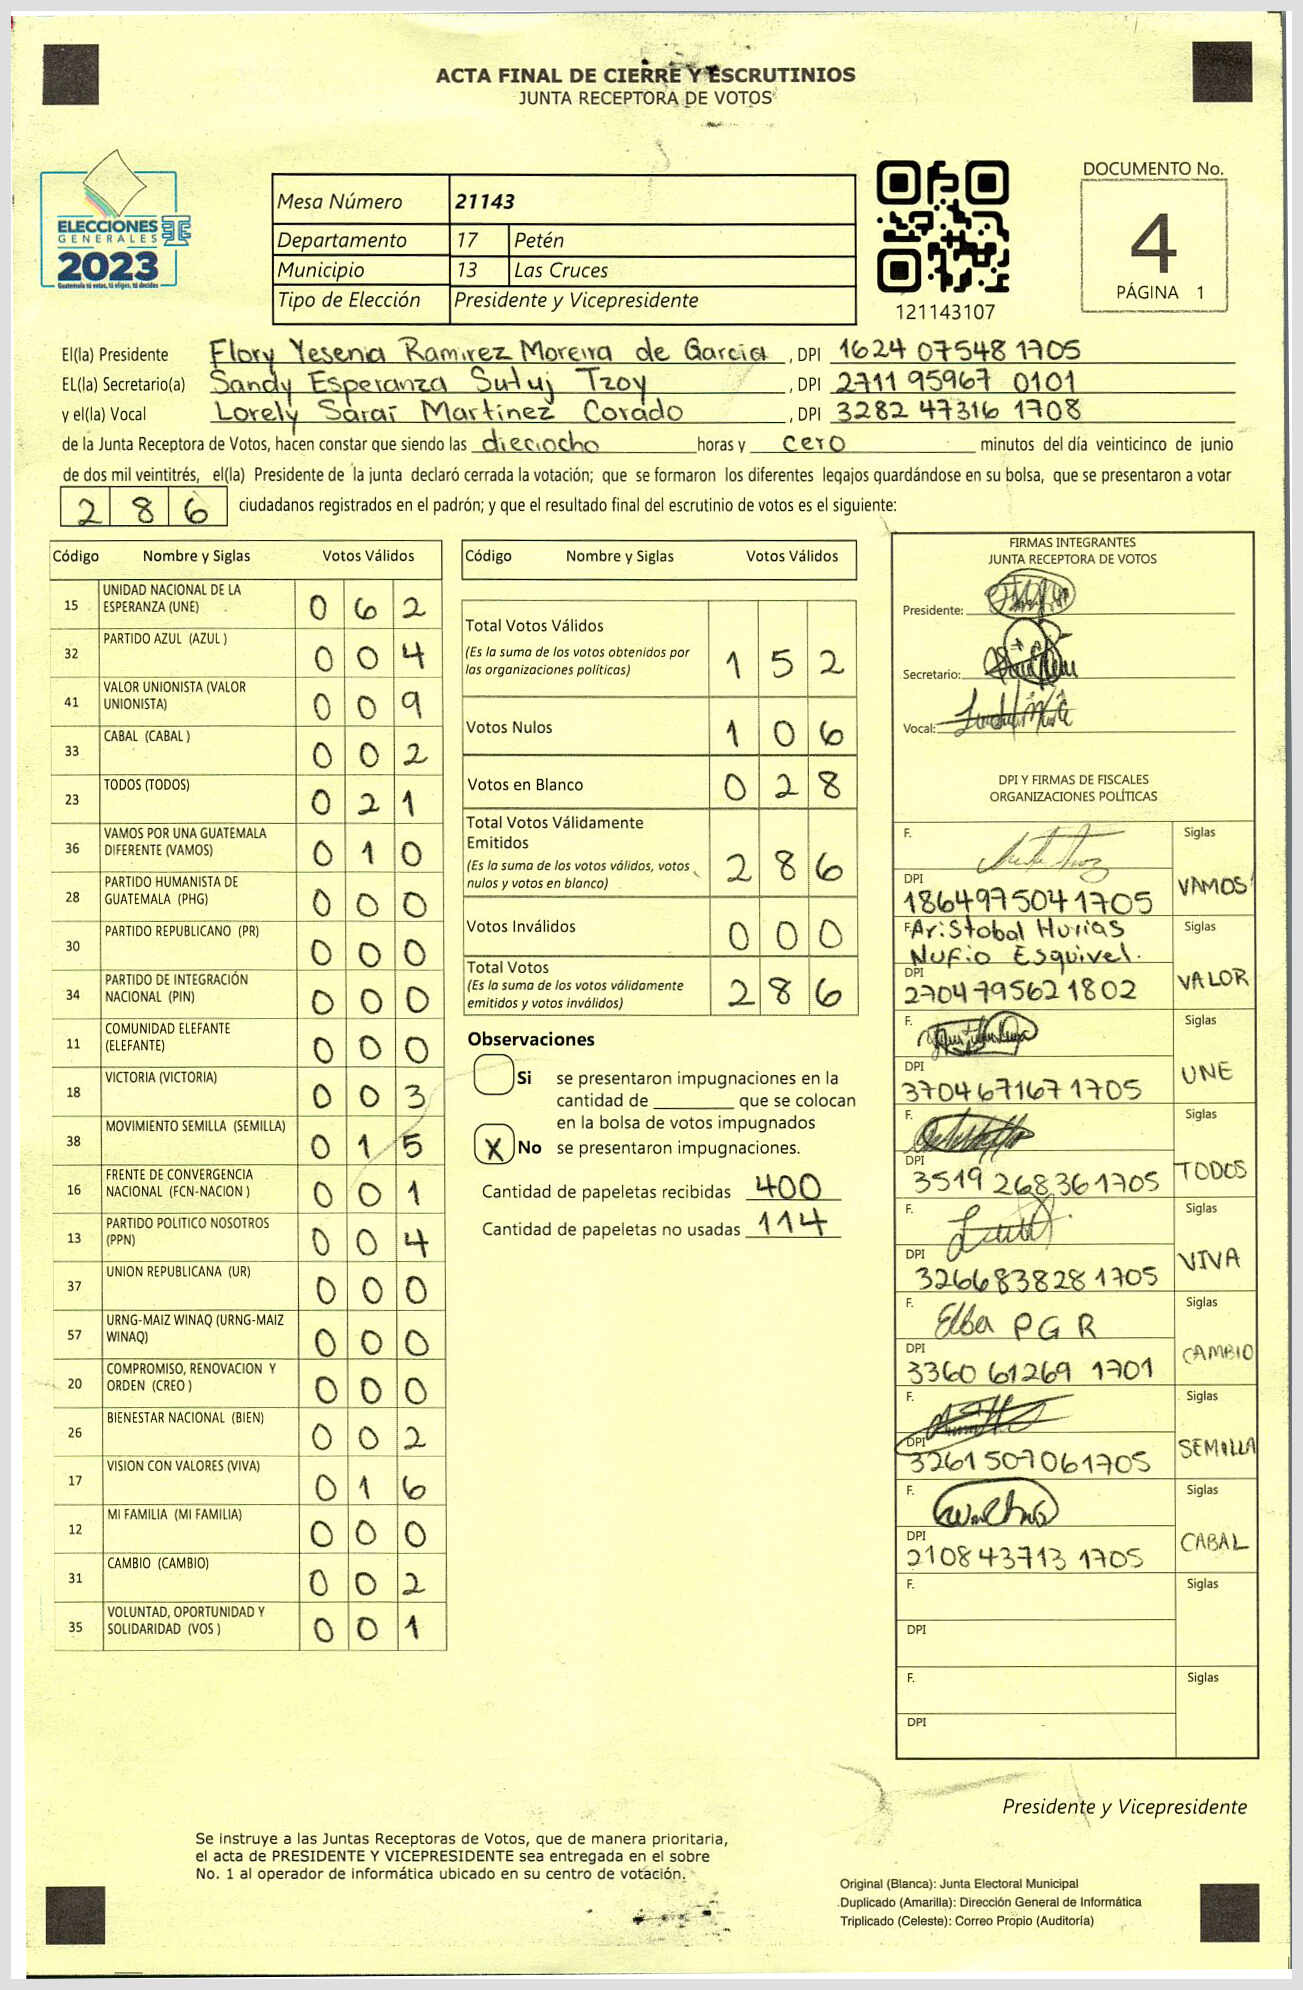 ACTA FINAL DE CIERRE Y ESCRUTINIOS
JUNTA RECEPTORA DE VOTOS
ELECCIONES
GENERALES
2023
Guatemala tú votas, tú eliges, tú decides
Mesa Número 21143
Departamento 17 Petén
Municipio 13 Las Cruces
Tipo de Elección Presidente y Vicepresidente
121143107
DOCUMENTO No.
4
PÁGINA 1
El(la) Presidente Flory Yesenia Ramirez Moreira de Garcia, DPI 1624 07548 1705
EL(la) Secretario(a) Sandy Esperanza Sutuj Tzoy, DPI 2711 95967 0101
y el(la) Vocal Lorely Saraí Martinez Corado, DPI 3282 47316 1708
de la Junta Receptora de Votos, hacen constar que siendo las dieciocho horas y cero minutos del día veinticinco de junio
de dos mil veintitrés, el(la) Presidente de la junta declaró cerrada la votación; que se formaron los diferentes legajos guardándose en su bolsa, que se presentaron a votar
286 ciudadanos registrados en el padrón; y que el resultado final del escrutinio de votos es el siguiente:
Código Nombre y Siglas Votos Válidos
15 UNIDAD NACIONAL DE LA ESPERANZA (UNE) 062
32 PARTIDO AZUL (AZUL ) 004
41 VALOR UNIONISTA (VALOR UNIONISTA) 009
33 CABAL (CABAL ) 002
23 TODOS (TODOS) 021
36 VAMOS POR UNA GUATEMALA DIFERENTE (VAMOS) 010
28 PARTIDO HUMANISTA DE GUATEMALA (PHG) 000
30 PARTIDO REPUBLICANO (PR) 000
34 PARTIDO DE INTEGRACIÓN NACIONAL (PIN) 000
11 COMUNIDAD ELEFANTE (ELEFANTE) 000
18 VICTORIA (VICTORIA) 003
38 MOVIMIENTO SEMILLA (SEMILLA) 015
16 FRENTE DE CONVERGENCIA NACIONAL (FCN-NACION ) 001
13 PARTIDO POLITICO NOSOTROS (PPN) 004
37 UNION REPUBLICANA (UR) 000
57 URNG-MAIZ WINAQ (URNG-MAIZ WINAQ) 000
20 COMPROMISO, RENOVACION Y ORDEN (CREO ) 000
26 BIENESTAR NACIONAL (BIEN) 002
17 VISION CON VALORES (VIVA) 016
12 MI FAMILIA (MI FAMILIA) 000
31 CAMBIO (CAMBIO) 002
35 VOLUNTAD, OPORTUNIDAD Y SOLIDARIDAD (VOS ) 001
Código Nombre y Siglas Votos Válidos
Total Votos Válidos 152
(Es la suma de los votos obtenidos por
las organizaciones políticas)
Votos Nulos 106
Votos en Blanco 028
Total Votos Válidamente
Emitidos 286
(Es la suma de los votos válidos, votos
nulos y votos en blanco)
Votos Inválidos 000
Total Votos 286
(Es la suma de los votos válidamente
emitidos y votos inválidos)
Observaciones
Si se presentaron impugnaciones en la
cantidad de ________ que se colocan
en la bolsa de votos impugnados
X No se presentaron impugnaciones.
Cantidad de papeletas recibidas 400
Cantidad de papeletas no usadas 114
FIRMAS INTEGRANTES
JUNTA RECEPTORA DE VOTOS
Presidente:
Secretario:
Vocal:
DPI Y FIRMAS DE FISCALES
ORGANIZACIONES POLÍTICAS
F. Siglas
DPI VAMOS
1864975041705
F. Aristobal Hurias Siglas
Nufio Esquivel.
DPI VALOR
2704795621802
F. Siglas
DPI UNE
3704671671705
F. Siglas
DPI TODOS
3519 268361705
F. Siglas
DPI VIVA
3266838281705
F. Elba PGR Siglas
DPI CAMBIO
3360 61269 1701
F. Siglas
DPI SEMILLA
3261507061705
F. Siglas
DPI CABAL
210843713 1705
F. Siglas
DPI
F. Siglas
DPI
Presidente y Vicepresidente
Se instruye a las Juntas Receptoras de Votos, que de manera prioritaria,
el acta de PRESIDENTE Y VICEPRESIDENTE sea entregada en el sobre
No. 1 al operador de informática ubicado en su centro de votación.
Original (Blanca): Junta Electoral Municipal
Duplicado (Amarilla): Dirección General de Informática
Triplicado (Celeste): Correo Propio (Auditoría)